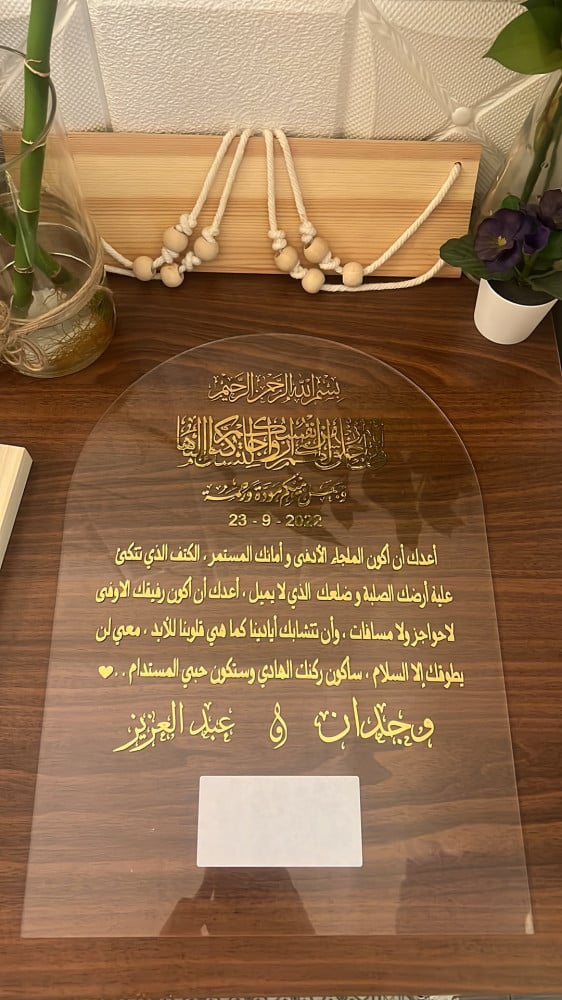 بسم الله الرحمن الرحيم
خلق لكم من أنفسكم أزواجا لتسكنوا إليها
وجعل بينكم مودة ورحمة
23 - 9 - 2022
أعدك أن أكون الملجاء الأدفى و أمانك المستمر ، الكتف الذي تتكئ
علية أرضك الصلبة و ضلعك الذي لا يميل ، أعدك أن أكون رفيقك الاوفى
لاحواجز ولا مسافات ، وأن تتشابك أيادينا كما هي قلوبنا للأبد ، معي لن
يطوقك إلا السلام ، ساكون ركنك الهادي وستكون حبي المستدام . . ♥
وجدان و عبد العزيز